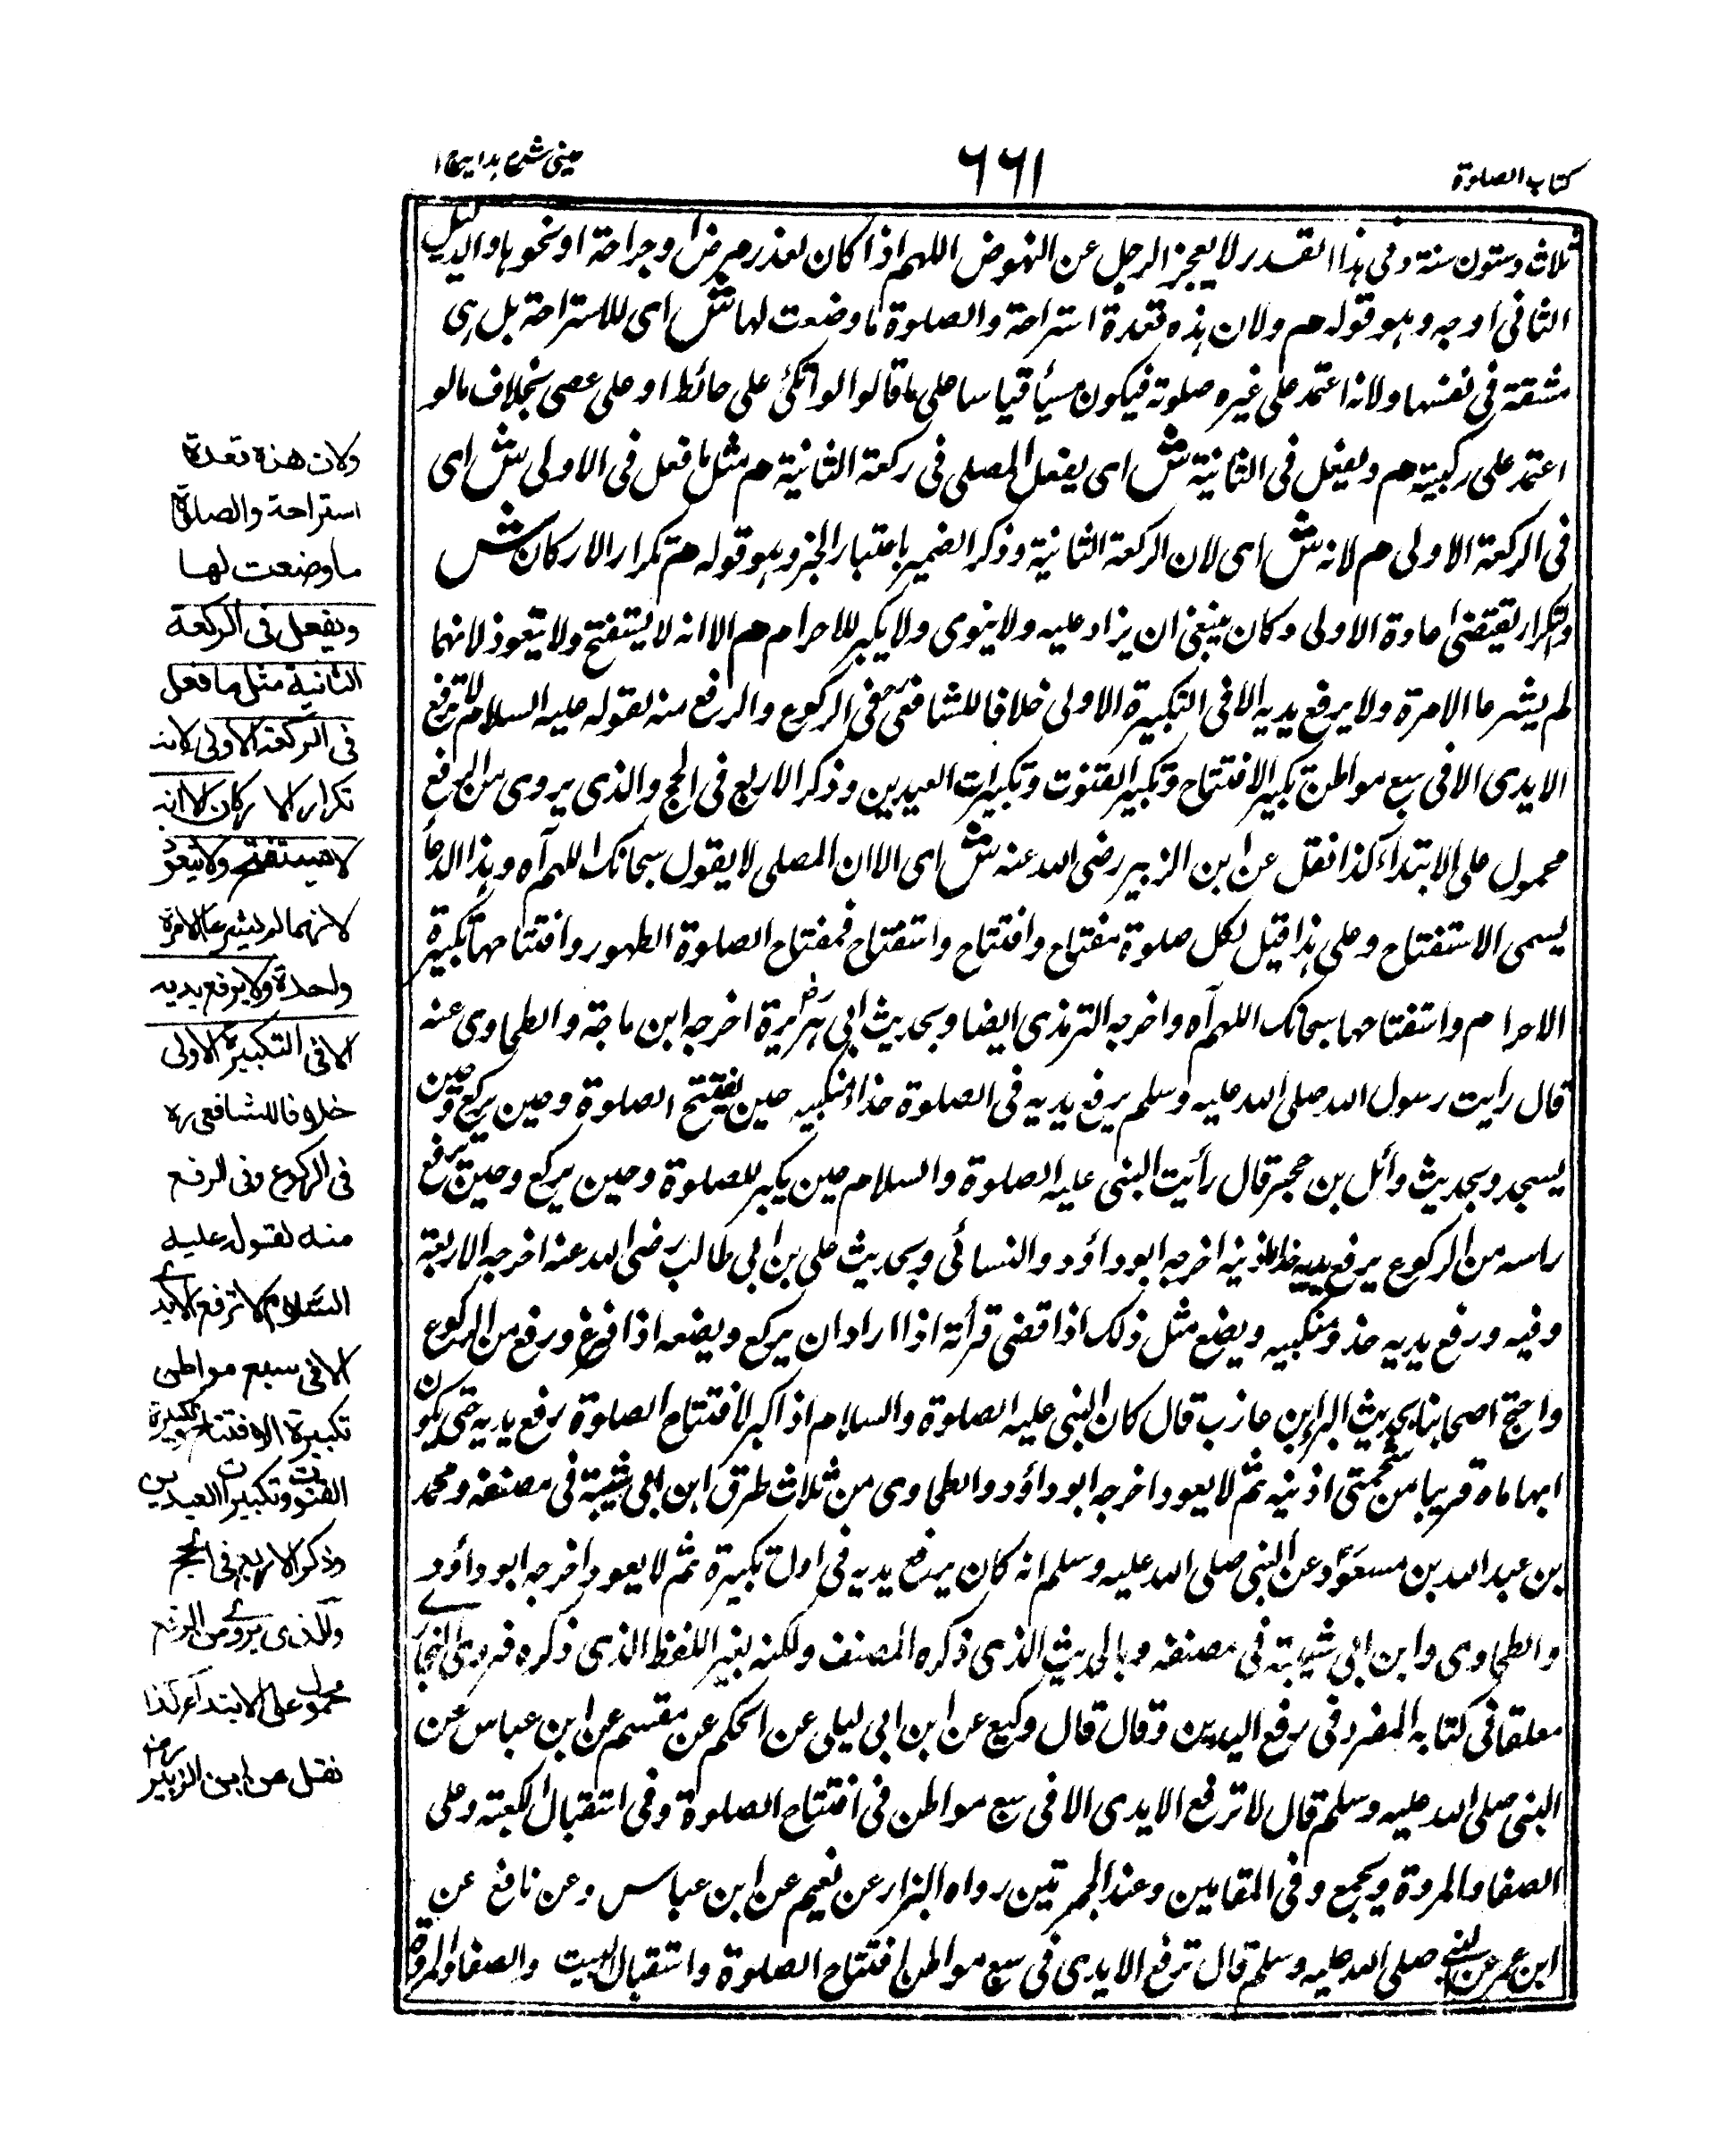 كتاب الصلوة
٦٦١
عينى شرح هدايه ج ١
ثلاث وستون سنة وفى هذا القدر لا يعجز الرجل عن النهوض اللهم اذا كان لعذر مرض او جراحة او نحوها والدليل
الثانى اوجه وهو قوله هم ولان هذه قعدة استراحة والصلوة ما وضعت لها ش اى للاستراحة بل هى
مشقة فى نفسها ولانه اعتمد على غيره صلوته فيكون مسيأ قياسا على ما قالوا لو اتكئ على حائط او على عصى بخلاف ما لو
اعتمد على ركبتيه هم ويفعل فى الثانية ش اى يفعل المصلى فى ركعة الثانية هم مثل ما فعل فى الاولى ش اى
فى الركعة الاولى هم لانه ش اى لان الركعة الثانية وذكر الضمير باعتبار الخبر وهو قوله هم تكرار الاركان ش
والتكرار يقتضى اعادة الاولى وكان ينبغى ان يزاد عليه ولا ينوى ولا يكبر للاحرام هم الا انه لا يستفتح ولا يتعوذ لانهما
لم يشرعا الا مرة ولا يرفع يديه الا فى التكبيرة الاولى خلافا للشافعى فى الركوع والرفع منه لقوله عليه السلام لا ترفع
الايدى الا فى سبع مواطن تكبير الافتتاح وتكبير القنوت وتكبيرات العيدين وذكر الاربع فى الحج والذى يروى من الرفع
محمول على الابتداء كذا نقل عن ابن الزبير رضى الله عنه ش اى الا ان المصلى لا يقول سبحانك اللهم آه وهذا الدعأ
يسمى الاستفتاح وعلى هذا قيل لكل صلوة مفتاح وافتتاح واستفتاح فمفتاح الصلوة الطهور وافتتاحها تكبيرة
الاحرام واستفتاحها سبحانك اللهم آه واخرجه الترمذى ايضا وبحديث ابى هريرة رض اخرجه ابن ماجة والطحاوى عنه
قال رايت رسول الله صلى الله عليه وسلم يرفع يديه فى الصلوة حذاء منكبيه حين يفتتح الصلوة وحين يركع وحين
يسجد وبحديث وائل بن حجر قال رأيت النبى عليه الصلوة والسلام حين يكبر للصلوة وحين يركع وحين يرفع
راسه من الركوع يرفع يديه حذا اذنيه اخرجه ابو داؤد والنسائى وبحديث على بن ابى طالب رضى الله عنه اخرجه الاربعة
وفيه ورفع يديه حذو منكبيه ويضع مثل ذلك اذا قضى قرأته اذا اراد ان يركع ويضعه اذا فرغ ورفع من الركوع
واحتج اصحابنا بحديث البراء بن عازب قال كان النبى عليه الصلوة والسلام اذا كبر لافتتاح الصلوة رفع يديه حتى يكون
ابهاماه قريبا من شحمتى اذنيه ثم لا يعود اخرجه ابو داؤد والطحاوى من ثلاث طرق ابن ابى شيبة فى مصنفه ومحمد
بن عبد الله بن مسعود عن النبى صلى الله عليه وسلم انه كان يرفع يديه فى اول تكبيرة ثم لا يعود اخرجه ابو داؤد
والطحاوى وابن ابى شيبة فى مصنفه وبالحديث الذى ذكره المصنف ولكنه بغير اللفظ الذى ذكره فروى البخارى
معلقا فى كتابه المفرد فى رفع اليدين وقال قال وكيع عن ابن ابى ليلى عن الحكم عن مقسم عن ابن عباس عن
النبى صلى الله عليه وسلم قال لا ترفع الايدى الا فى سبع مواطن فى افتتاح الصلوة وفى استقبال الكعبة وعلى
الصفا والمروة وبجمع وفى المقامين وعند الجمرتين رواه البزار عن نعيم عن ابن عباس وعن نافع عن
ابن عمر عن النبى صلى الله عليه وسلم قال ترفع الايدى فى سبع مواطن افتتاح الصلوة واستقبال البيت والصفا والمروة
ولان هذه قعدة
استراحة والصلاة
ما وضعت لها
ويفعل فى الركعة
الثانية مثل ما فعل
فى الركعة الاولى لانه
تكرار الاركان الا انه
لا يستفتح ولا يتعوذ
لانهما لم يشرعا الا مرة
واحدة ولا يرفع يديه
الا فى التكبيرة الاولى
خلافا للشافعى ره
فى الركوع وفى الرفع
منه لقوله عليه
السلام لا ترفع الايدى
الا فى سبع مواطن
تكبيرة الافتتاح وتكبيرة
القنوت وتكبيرات العيدين
وذكر الاربع فى الحج
والذى يروى من الرفع
محمول على الابتداء كذا
نقل عن ابن الزبير رض